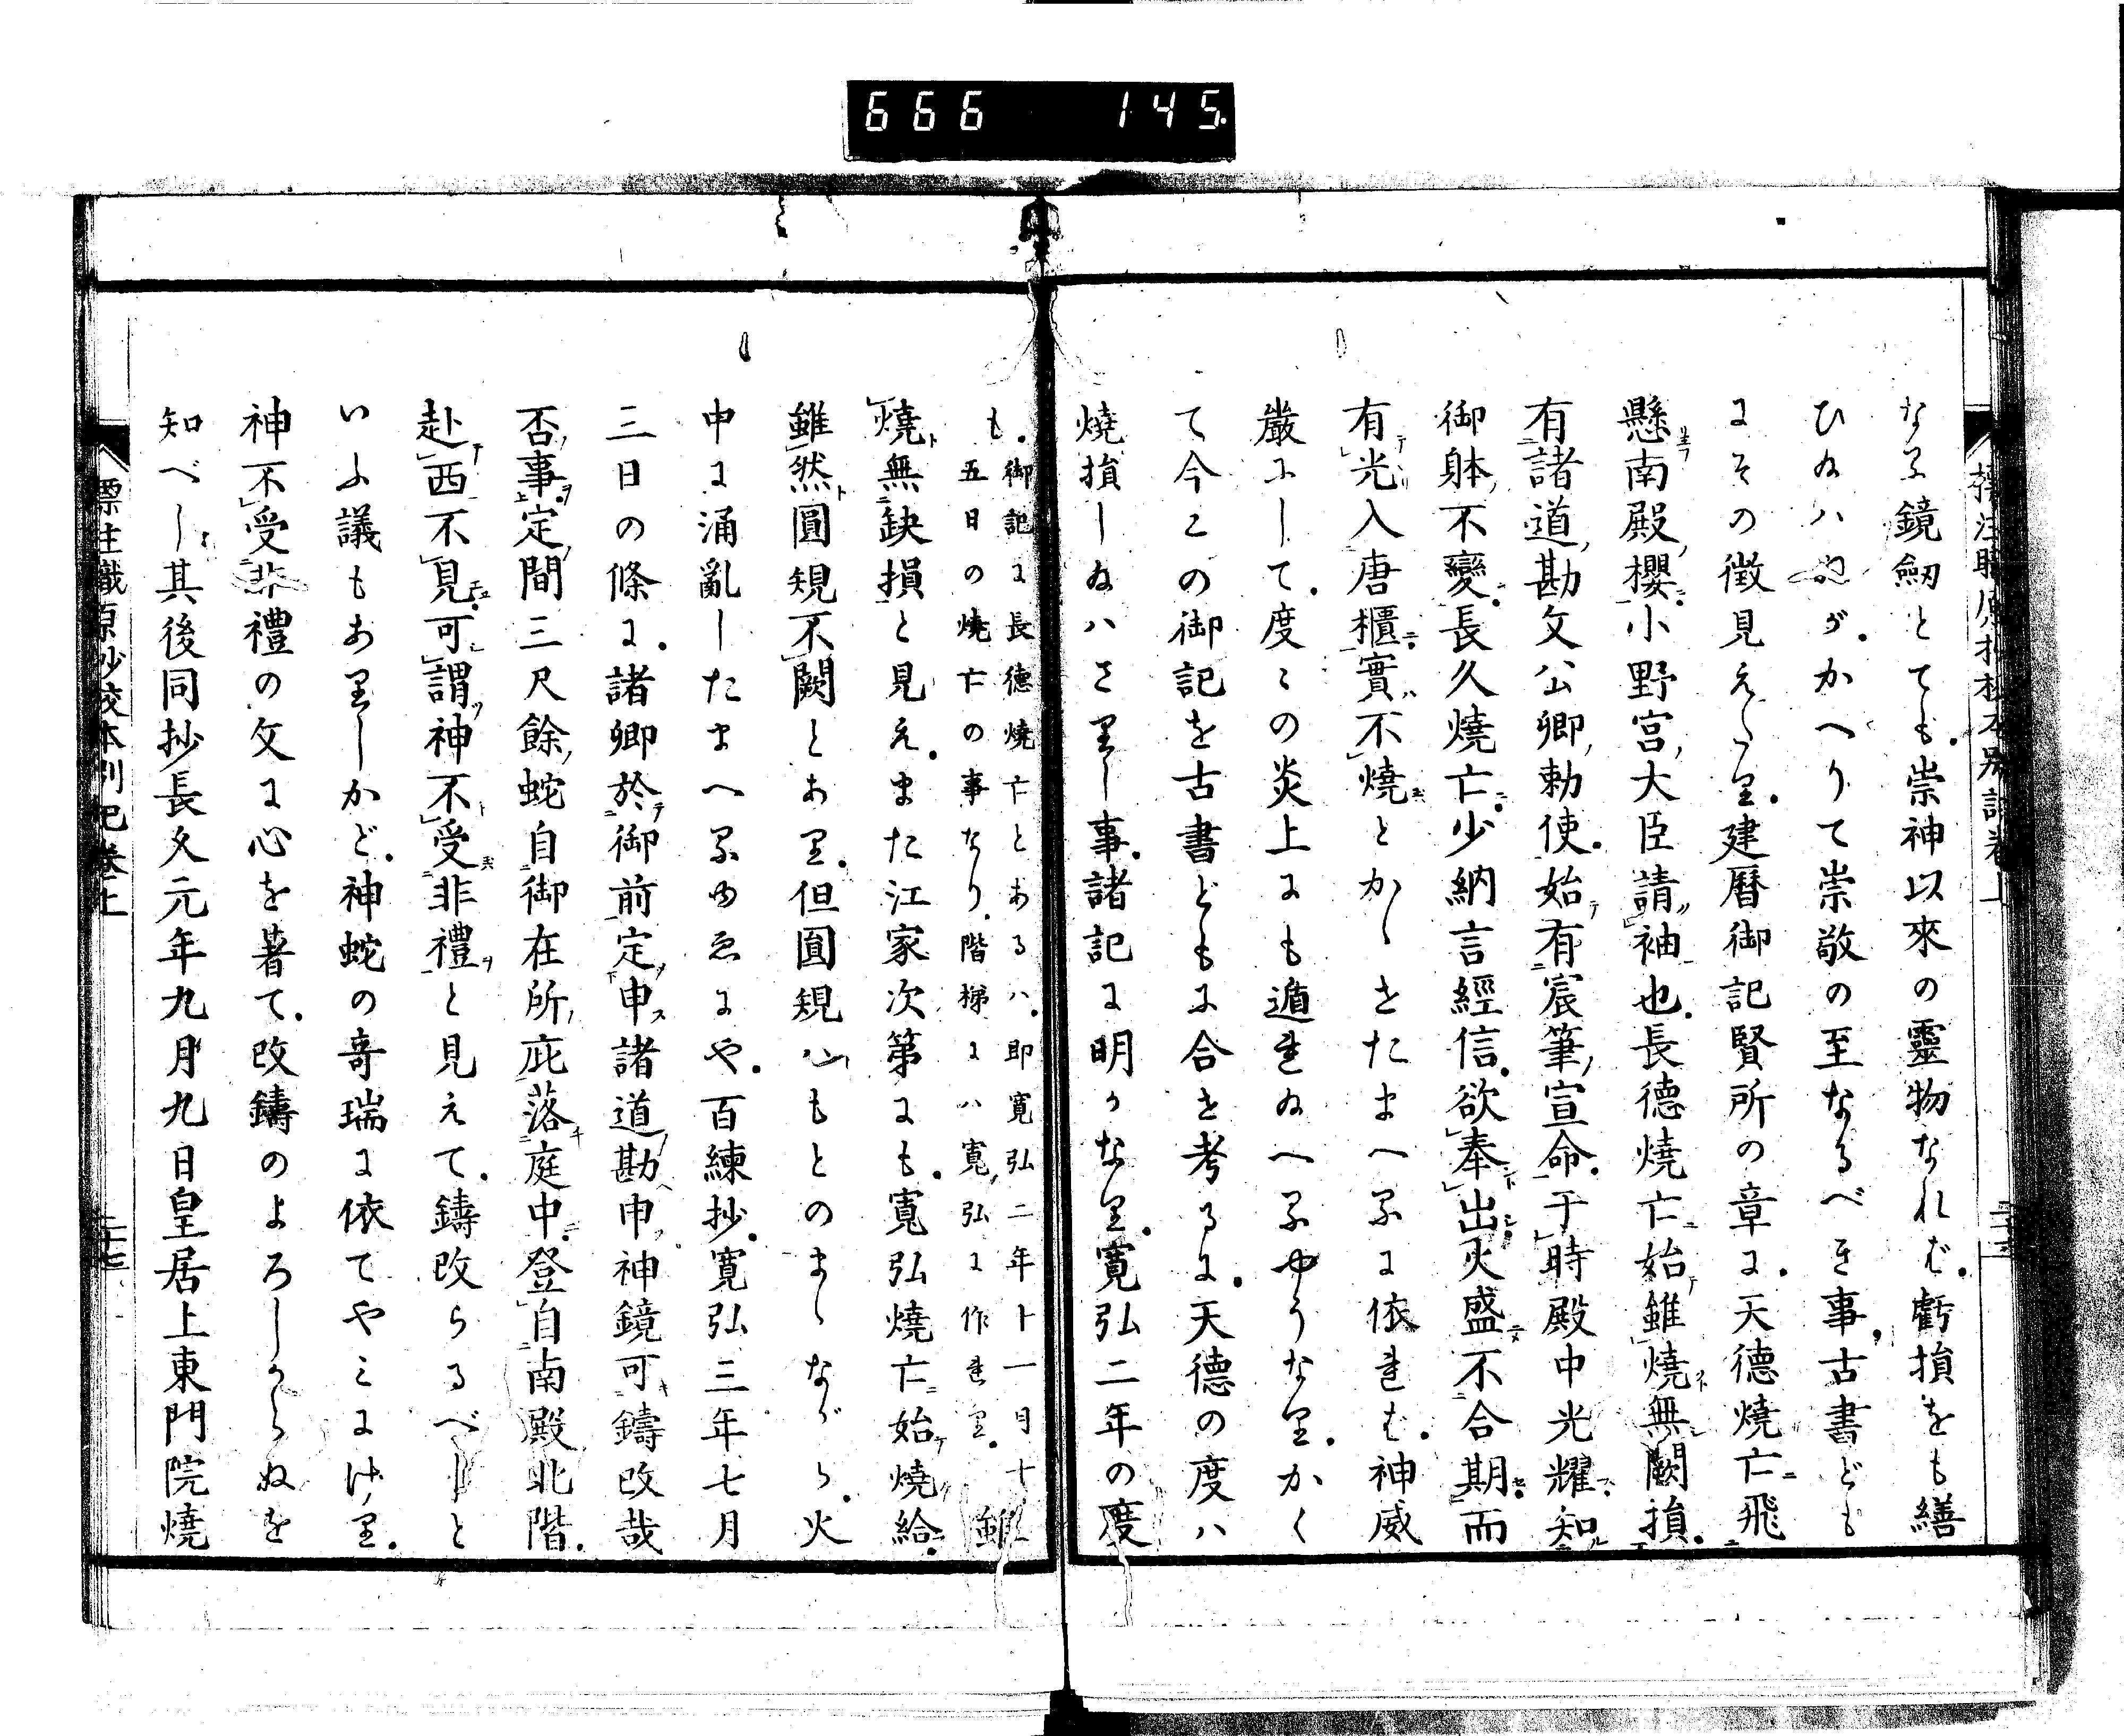 666 145
なる鏡劔とても。崇神以來の靈物なれば。虧損をも繕
ひぬハぬが。かへりて崇敬の至なるべき事。古書ども
にその徴見えたり。建曆御記賢所の章に。天德燒亡飛
懸南殿櫻小野宮大臣請袖也。長德燒亡始雖燒無闕損。
有諸道勘文公卿勅使。始有宸筆宣命。于時殿中光耀知
御躰不變。長久燒亡。少納言經信欲奉出火盛不合期。而
有光入唐櫃實不燒とかゝせたまへるに依れば。神威
嚴にして。度々の炎上にも遁れぬへるやうなり。かく
て今この御記を古書どもに合せ考るに。天德の度ハ
燒損しぬハざりし事。諸記に明かなり。寬弘二年の度
も。御記に長德燒亡とあるハ。即寬弘二年十一月十
五日の燒亡の事なり。階梯にハ寬弘に作れり。雖
燒無缺損と見え。また江家次第にも。寬弘燒亡始燒給。
雖然圓規不闕とあり。但圓規ハもとのまゝながら。火
中に涌亂したまへるゆゑにや。百練抄。寬弘三年七月
三日の條に。諸卿於御前定申諸道勘申神鏡可鑄改哉
否事。定間三尺餘蛇自御在所庇落庭中。登自南殿北階。
赴西不見。可謂神不受非禮と見えて。鑄改らるべしと
いふ議もありしかど。神蛇の奇瑞に依てやみにけり。
神不受非禮の文に心を著て。改鑄のよろしからぬを
知べし。其後同抄長久元年九月九日皇居上東門院燒
標注職原抄校本別記卷上
二十七